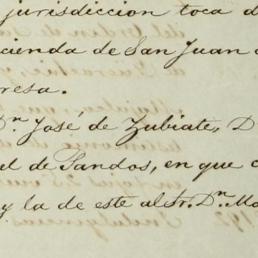 jurisdiccion toca d
cienda de San Juan
resa.
Dn. José de Zubiate, D
el de Santos, en que c
y la de este al Sr. Dn. Ma